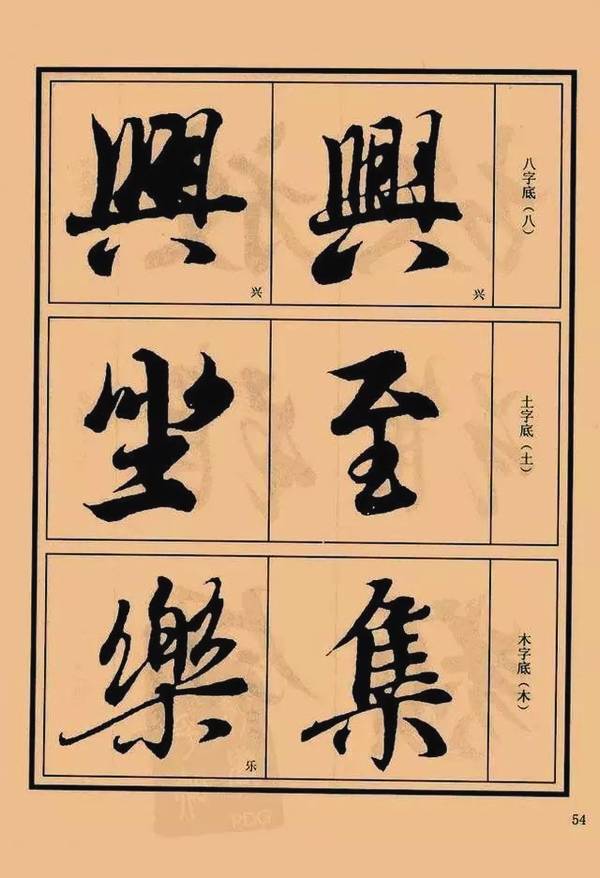 八字底（八）
興 興
兴 兴
土字底（土）
至 坐
木字底（木）
集 樂
乐
54
PDG